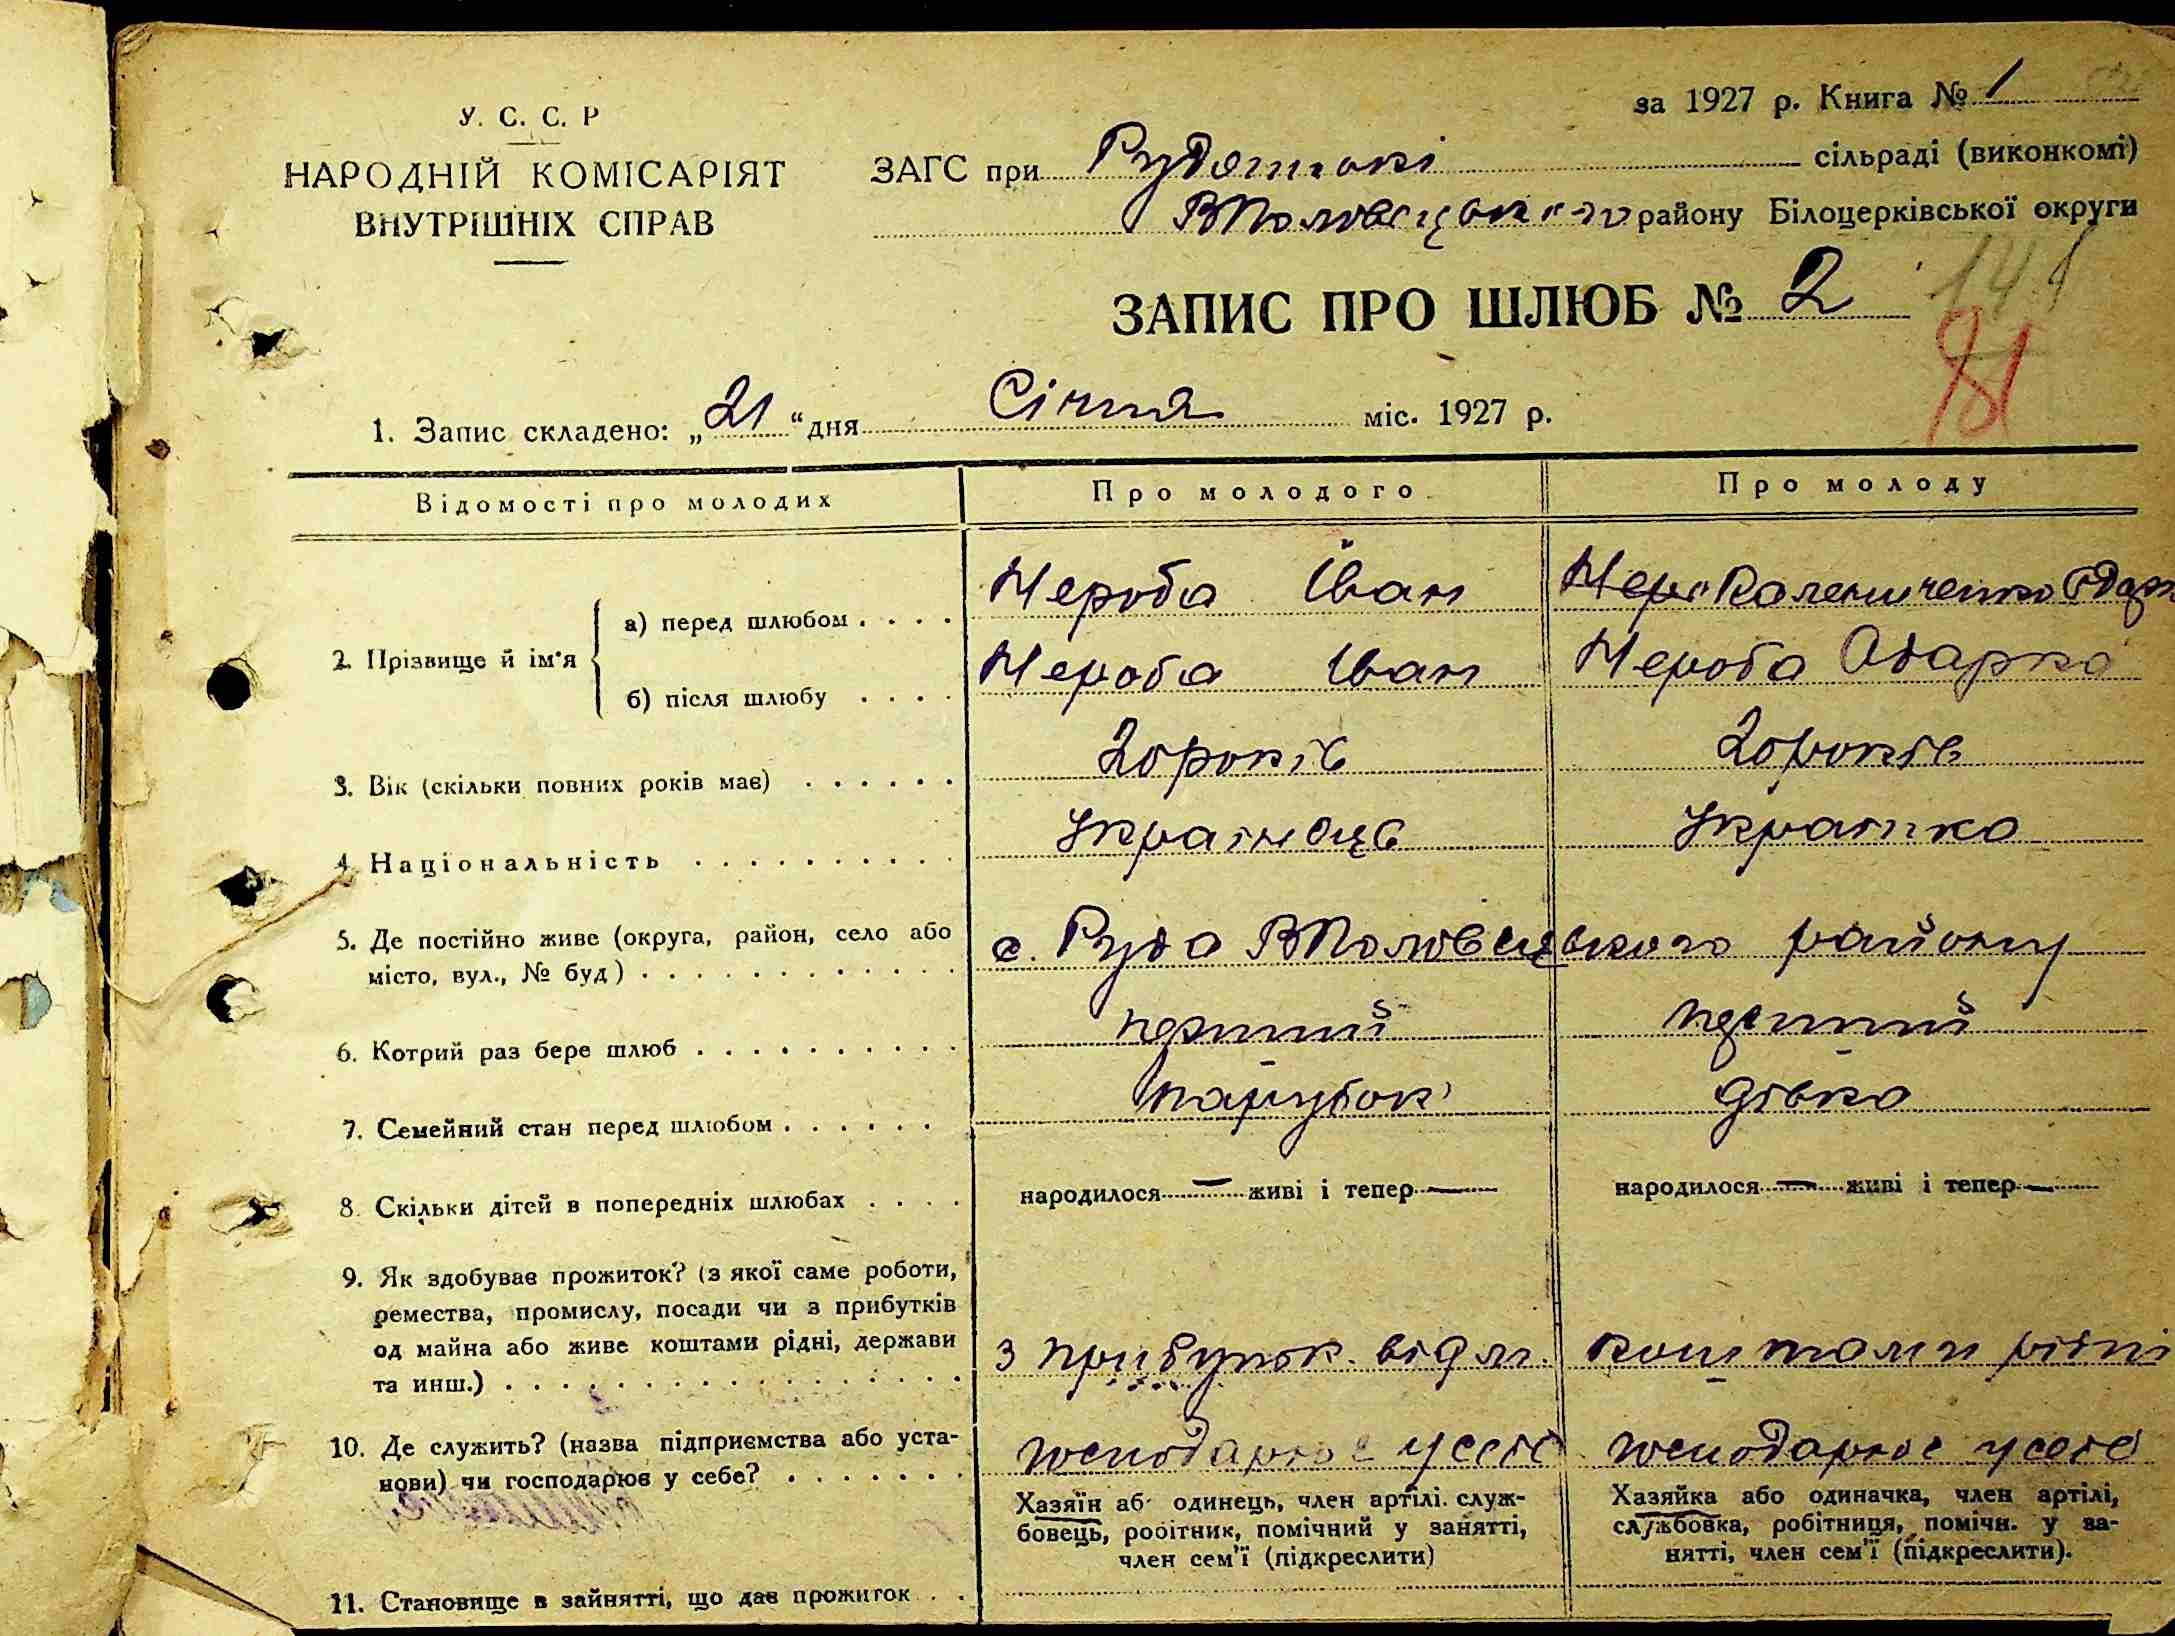 за 1927 р. Книга № 1
У. С. С. Р
НАРОДНІЙ КОМІСАРІЯТ
ВНУТРІШНІХ СПРАВ
ЗАГС при Рудянські сільраді (виконкомі)
ВПоловецького району Білоцерківської округи
ЗАПИС ПРО ШЛЮБ № 2
141
81
1. Запис складено: „21“ дня Січня міс. 1927 р.
Відомості про молодих Про молодого Про молоду
2. Прізвище й ім'я
а) перед шлюбом . . . . Нероба Іван Неро Калениченко Одарк
б) після шлюбу . . . . Нероба Іван Нероба Одарка
3. Вік (скільки повних років має) . . . . . . 20 років 20 років
4. Національність . . . . . . . . . . Українець Українка
5. Де постійно живе (округа, район, село або
місто, вул., № буд) . . . . . . . . . . . . с. Руда ВПоловецького району
6. Котрий раз бере шлюб . . . . . . . . . . перший перший
7. Семейний стан перед шлюбом . . . . . . парубок дівка
8. Скільки дітей в попередніх шлюбах . . . . народилося — живі і тепер — народилося — живі і тепер —
9. Як здобував прожиток? (з якої саме роботи,
ремества, промислу, посади чи з прибутків
од майна або живе коштами рідні, держави
та инш.) . . . . . . . . . . . . . . . . . з прибутк. від м. коштами рідні
10. Де служить? (назва підприємства або уста-
нови) чи господарює у себе? . . . . . . . господарює у себе господарює у себе
Хазяїн аб одинець, член артілі. служ-
бовець, робітник, помічний у занятті,
член сем'ї (підкреслити)
Хазяйка або одиначка, член артілі,
службовка, робітниця, помічн. у за-
нятті, член сем'ї (підкреслити).
11. Становище в зайнятті, що дає прожиток . .